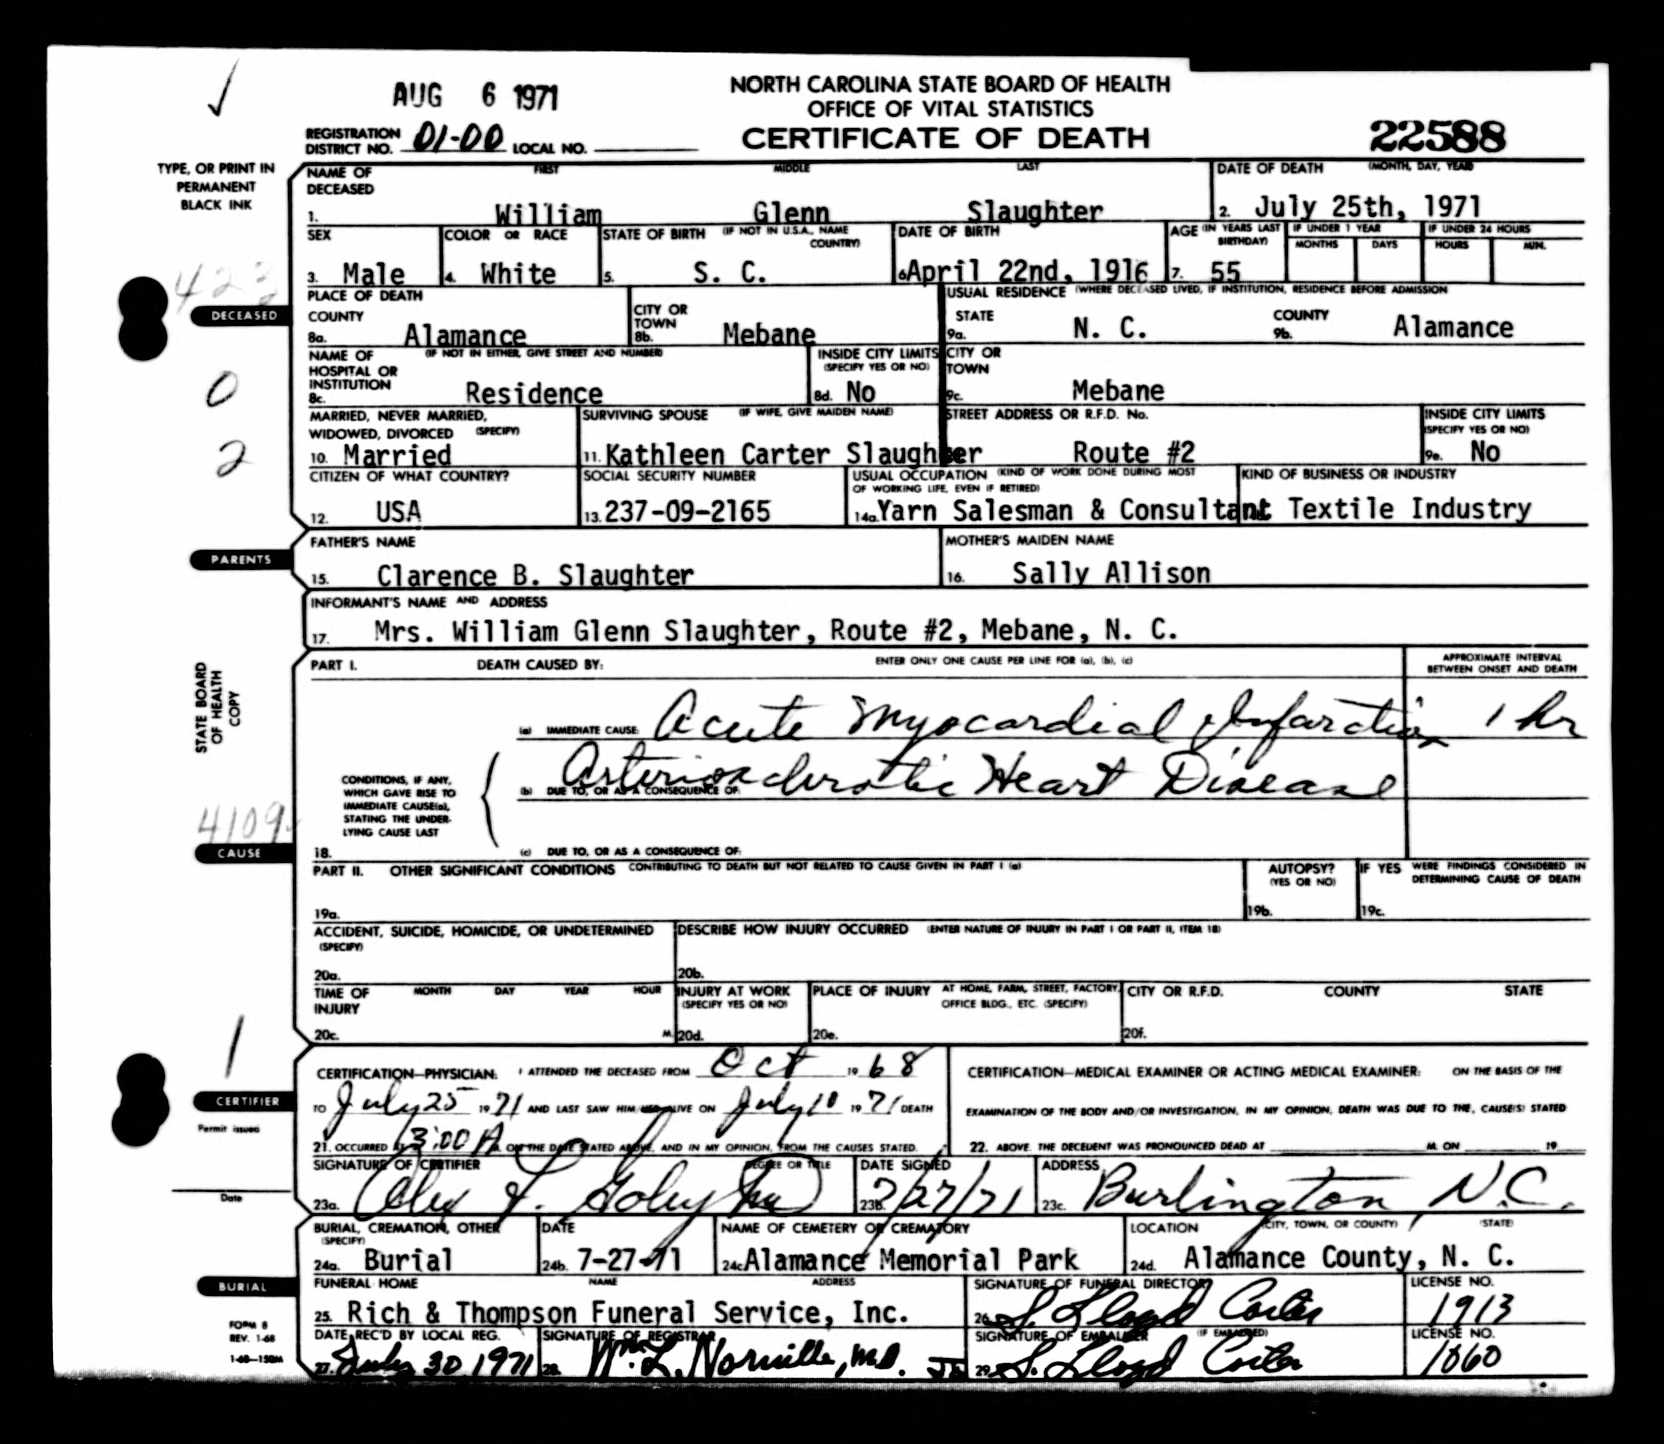 AUG 6 1971
NORTH CAROLINA STATE BOARD OF HEALTH
OFFICE OF VITAL STATISTICS
CERTIFICATE OF DEATH
22588
REGISTRATION DISTRICT NO. 01-00 LOCAL NO.
TYPE, OR PRINT IN
PERMANENT
BLACK INK
NAME OF DECEASED FIRST MIDDLE LAST
1. William Glenn Slaughter
DATE OF DEATH (MONTH, DAY, YEAR)
2. July 25th, 1971
SEX
3. Male
COLOR OR RACE
4. White
STATE OF BIRTH (IF NOT IN U.S.A., NAME COUNTRY)
5. S. C.
DATE OF BIRTH
6. April 22nd, 1916
AGE (IN YEARS LAST BIRTHDAY)
7. 55
IF UNDER 1 YEAR
MONTHS DAYS
IF UNDER 24 HOURS
HOURS MIN.
423
DECEASED
PLACE OF DEATH
COUNTY
8a. Alamance
CITY OR TOWN
8b. Mebane
USUAL RESIDENCE (WHERE DECEASED LIVED, IF INSTITUTION, RESIDENCE BEFORE ADMISSION
STATE
9a. N. C.
COUNTY
9b. Alamance
NAME OF HOSPITAL OR INSTITUTION (IF NOT IN EITHER, GIVE STREET AND NUMBER)
8c. Residence
INSIDE CITY LIMITS (SPECIFY YES OR NO)
8d. No
CITY OR TOWN
9c. Mebane
0
2
MARRIED, NEVER MARRIED,
WIDOWED, DIVORCED (SPECIFY)
10. Married
SURVIVING SPOUSE (IF WIFE, GIVE MAIDEN NAME)
11. Kathleen Carter Slaughter
STREET ADDRESS OR R.F.D. No.
Route #2
INSIDE CITY LIMITS
(SPECIFY YES OR NO)
9e. No
CITIZEN OF WHAT COUNTRY?
12. USA
SOCIAL SECURITY NUMBER
13. 237-09-2165
USUAL OCCUPATION (KIND OF WORK DONE DURING MOST
OF WORKING LIFE, EVEN IF RETIRED)
14a. Yarn Salesman & Consultant
KIND OF BUSINESS OR INDUSTRY
Textile Industry
PARENTS
FATHER'S NAME
15. Clarence B. Slaughter
MOTHER'S MAIDEN NAME
16. Sally Allison
INFORMANT'S NAME AND ADDRESS
17. Mrs. William Glenn Slaughter, Route #2, Mebane, N. C.
STATE BOARD
OF HEALTH
COPY
PART I. DEATH CAUSED BY: ENTER ONLY ONE CAUSE PER LINE FOR (a), (b), (c)
APPROXIMATE INTERVAL
BETWEEN ONSET AND DEATH
(a) IMMEDIATE CAUSE: Acute Myocardial Infarction 1 hr
CONDITIONS, IF ANY,
WHICH GAVE RISE TO
IMMEDIATE CAUSE(a),
STATING THE UNDER-
LYING CAUSE LAST
(b) DUE TO, OR AS A CONSEQUENCE OF: Arteriosclerotic Heart Disease
4109
CAUSE
18. (c) DUE TO, OR AS A CONSEQUENCE OF:
PART II. OTHER SIGNIFICANT CONDITIONS CONTRIBUTING TO DEATH BUT NOT RELATED TO CAUSE GIVEN IN PART I (a)
19a.
AUTOPSY?
(YES OR NO)
19b.
IF YES WERE FINDINGS CONSIDERED IN
DETERMINING CAUSE OF DEATH
19c.
ACCIDENT, SUICIDE, HOMICIDE, OR UNDETERMINED
(SPECIFY)
20a.
DESCRIBE HOW INJURY OCCURRED (ENTER NATURE OF INJURY IN PART I OR PART II, ITEM 18)
20b.
TIME OF INJURY MONTH DAY YEAR HOUR
20c. M.
INJURY AT WORK
(SPECIFY YES OR NO)
20d.
PLACE OF INJURY AT HOME, FARM, STREET, FACTORY,
OFFICE BLDG., ETC. (SPECIFY)
20e.
CITY OR R.F.D. COUNTY STATE
20f.
1
CERTIFIER
Permit issued
Date
CERTIFICATION—PHYSICIAN: I ATTENDED THE DECEASED FROM Oct 19 68
TO July 25 19 71 AND LAST SAW HIM/HER ALIVE ON July 10 19 71 DEATH
21. OCCURRED AT 3:00 A M. ON THE DATE STATED ABOVE, AND IN MY OPINION, FROM THE CAUSES STATED.
CERTIFICATION—MEDICAL EXAMINER OR ACTING MEDICAL EXAMINER: ON THE BASIS OF THE
EXAMINATION OF THE BODY AND/OR INVESTIGATION, IN MY OPINION, DEATH WAS DUE TO THE, CAUSE(S) STATED
22. ABOVE. THE DECEDENT WAS PRONOUNCED DEAD AT M. ON 19
SIGNATURE OF CERTIFIER DEGREE OR TITLE
23a.
DATE SIGNED
23b. 7/27/71
ADDRESS
23c. Burlington N.C.
BURIAL, CREMATION, OTHER
(SPECIFY)
24a. Burial
DATE
24b. 7-27-71
NAME OF CEMETERY OR CREMATORY
24c. Alamance Memorial Park
LOCATION (CITY, TOWN, OR COUNTY) (STATE)
24d. Alamance County, N. C.
BURIAL
FUNERAL HOME NAME ADDRESS
25. Rich & Thompson Funeral Service, Inc.
SIGNATURE OF FUNERAL DIRECTOR
26. S. Lloyd Carter
LICENSE NO.
1913
FORM 8
REV. 1-68
1-68—150M
DATE REC'D BY LOCAL REG.
27. July 30 1971
SIGNATURE OF REGISTRAR
28. Wm. L. Norville, M.D.
SIGNATURE OF EMBALMER (IF EMBALMED)
29. S. Lloyd Carter
LICENSE NO.
1060